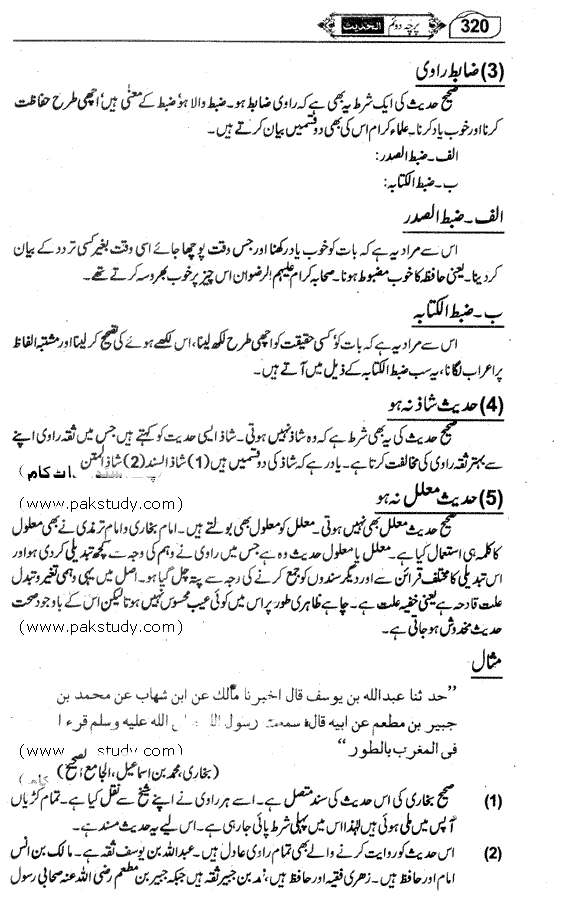 320 پرچہ دوئم الحدیث
(3) ضابط راوی
صحیح حدیث کی ایک شرط یہ بھی ہے کہ راوی ضابط ہو۔ ضبط والا ہو' ضبط کے معنیٰ ہیں' اچھی طرح حفاظت
کرنا اور خوب یاد کرنا۔ علماء کرام اس کی بھی دو قسمیں بیان کرتے ہیں۔
الف۔ ضبط الصدر:
ب۔ ضبط الکتابہ:
الف۔ ضبط الصدر
اس سے مراد یہ ہے کہ بات کو خوب یاد رکھنا اور جس وقت پوچھا جائے اسی وقت بغیر کسی تردد کے بیان
کر دینا۔ یعنی حافظہ کا خوب مضبوط ہونا۔ صحابہ کرام علیہم الرضوان اس چیز پر خوب بھروسہ کرتے تھے۔
ب۔ ضبط الکتابہ
اس سے مراد یہ ہے کہ بات کو' کسی حقیقت کو اچھی طرح لکھ لینا، اس لکھے ہوئے کی تصحیح کر لینا اور مشتبہ الفاظ
پر اعراب لگانا، یہ سب ضبط الکتابہ کے ذیل میں آتے ہیں۔
(4) حدیث شاذ نہ ہو
صحیح حدیث کی یہ بھی شرط ہے کہ وہ شاذ نہیں ہوتی۔ شاذ ایسی حدیث کو کہتے ہیں جس میں ثقہ راوی اپنے
سے بہتر ثقہ راوی کی مخالفت کرتا ہے۔ یاد رہے کہ شاذ کی دو قسمیں ہیں (1) شاذ السند (2) شاذ المتن
(5) حدیث معلل نہ ہو
(www.pakstudy.com)
صحیح حدیث معلل بھی نہیں ہوتی۔ معلل کو معلول بھی بولتے ہیں۔ امام بخاری و امام ترمذی نے بھی معلول
کا کلمہ ہی استعمال کیا ہے۔ معلل یا معلول حدیث وہ ہے جس میں راوی نے وہم کی وجہ سے کچھ تبدیلی کر دی ہو اور
اس تبدیلی کا مختلف قرائن سے اور دیگر سندوں کو جمع کرنے کی وجہ سے پتہ چل گیا ہو۔ اصل میں یہی وہمی تغیر و تبدل
علت قادحہ ہے یعنی خفیہ علت ہے۔ چاہے ظاہری طور پر اس میں کوئی عیب محسوس نہیں ہوتا لیکن اس کے باوجود صحت
حدیث مخدوش ہو جاتی ہے۔
(www.pakstudy.com)
مثال
"حد ثنا عبدالله بن یوسف قال اخبر نا مالک عن ابن شهاب عن محمد بن
جبیر بن مطعم عن ابیه قال، سمعت رسول الله الله علیه وسلم قرء ا
فی المغرب بالطور"
(www.pakstudy.com)
(بخاری، محمد بن اسماعیل، الجامع الصحیح)
(1) صحیح بخاری کی اس حدیث کی سند متصل ہے۔ اسے ہر راوی نے اپنے شیخ سے نقل کیا ہے۔ تمام کڑیاں
آپس میں ملی ہوئی ہیں لہٰذا اس میں پہلی شرط پائی جا رہی ہے۔ اس لیے یہ حدیث مسند ہے۔
(2) اس حدیث کو روایت کرنے والے بھی تمام راوی عادل ہیں۔ عبداللہ بن یوسف ثقہ ہے۔ مالک بن انس
امام اور حافظ ہیں۔ زھری فقیہ اور حافظ ہیں، بن جبیر ثقہ ہیں جبکہ جبیر بن مطعم رضی اللہ عنہ صحابی رسول